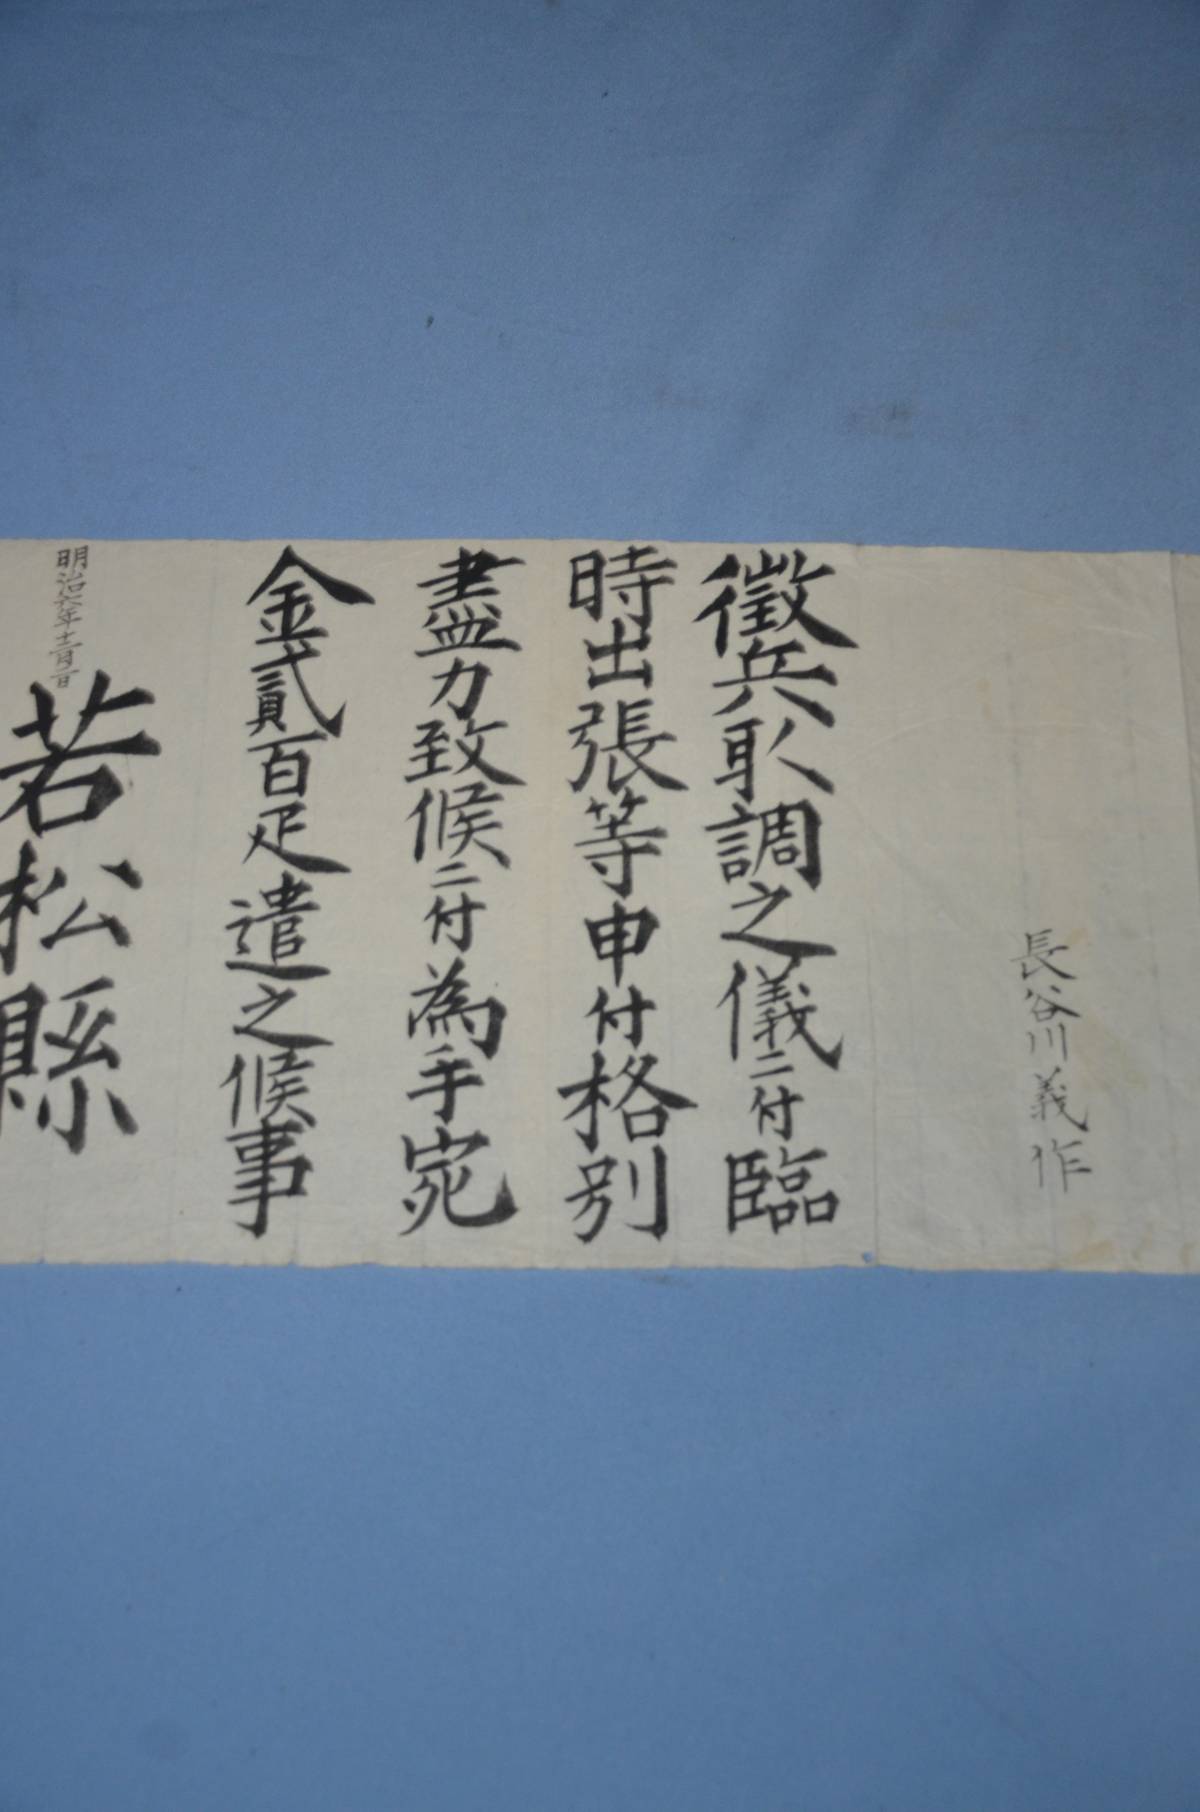 長谷川義作
徴兵取調之儀ニ付臨
時出張等申付格別
盡力致候ニ付為手宛
金貳百疋遣之候事
明治六年十二月二日
若松縣